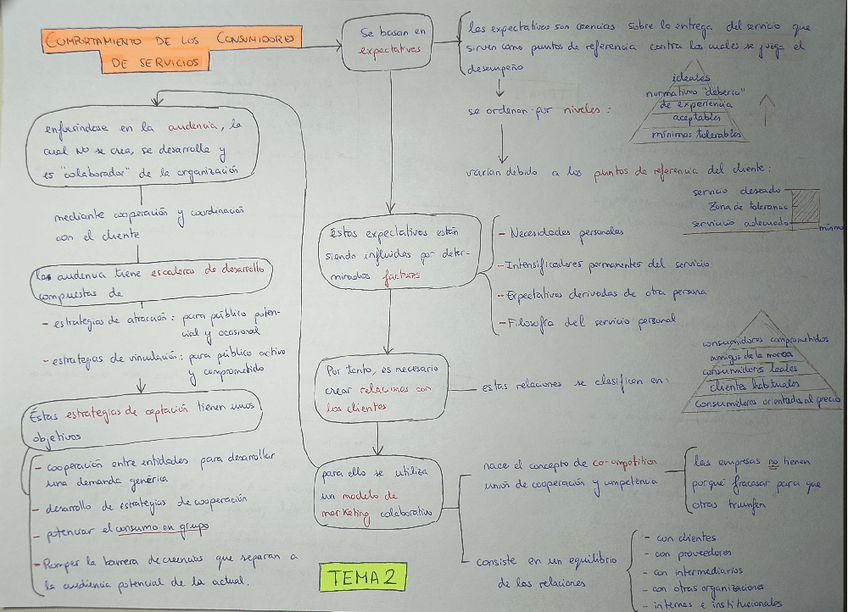 COMPORTAMIENTO DE LOS CONSUMIDORES
DE SERVICIOS
Se basan en
expectativas
las expectativas son creencias sobre la entrega del servicio que
sirven como puntos de referencia contra los cuales se juzga el
desempeño
se ordenan por niveles:
ideales
normativas "debería"
de experiencia
aceptables
mínimas tolerables
varían debido a los puntos de referencia del cliente:
servicio deseado
Zona de tolerancia
servicio adecuado
mínimo
Éstas expectativas están
siendo influidas por deter-
minados factores
- Necesidades personales
- Intensificadores permanentes del servicio
- Expectativas derivadas de otra persona
- Filosofía del servicio personal
Por tanto, es necesario
crear relaciones con
los clientes
estas relaciones se clasifican en:
consumidores comprometidos
amigos de la marca
consumidores leales
clientes habituales
consumidores orientados al precio
para ello se utiliza
un modelo de
marketing colaborativo
nace el concepto de co-ompetition
unión de cooperación y competencia
las empresas no tienen
porqué fracasar para que
otras triunfen
consiste en un equilibrio
de las relaciones
- con clientes
- con proveedores
- con intermediarios
- con otras organizaciones
- internas e institucionales
enfocándose en la audiencia, la
cual NO se crea, se desarrolla y
es "colaborador" de la organización
mediante cooperación y coordinación
con el cliente
la audiencia tiene escaleras de desarrollo
compuestas de
- estrategias de atracción: para público poten-
cial y ocasional
- estrategias de vinculación: para público activo
y comprometido
Éstas estrategias de captación tienen unos
objetivos
- cooperación entre entidades para desarrollar
una demanda genérica
- desarrollo de estrategias de cooperación
- potenciar el consumo en grupo
- Romper la barrera de creencias que separan a
la audiencia potencial de la actual.
TEMA 2